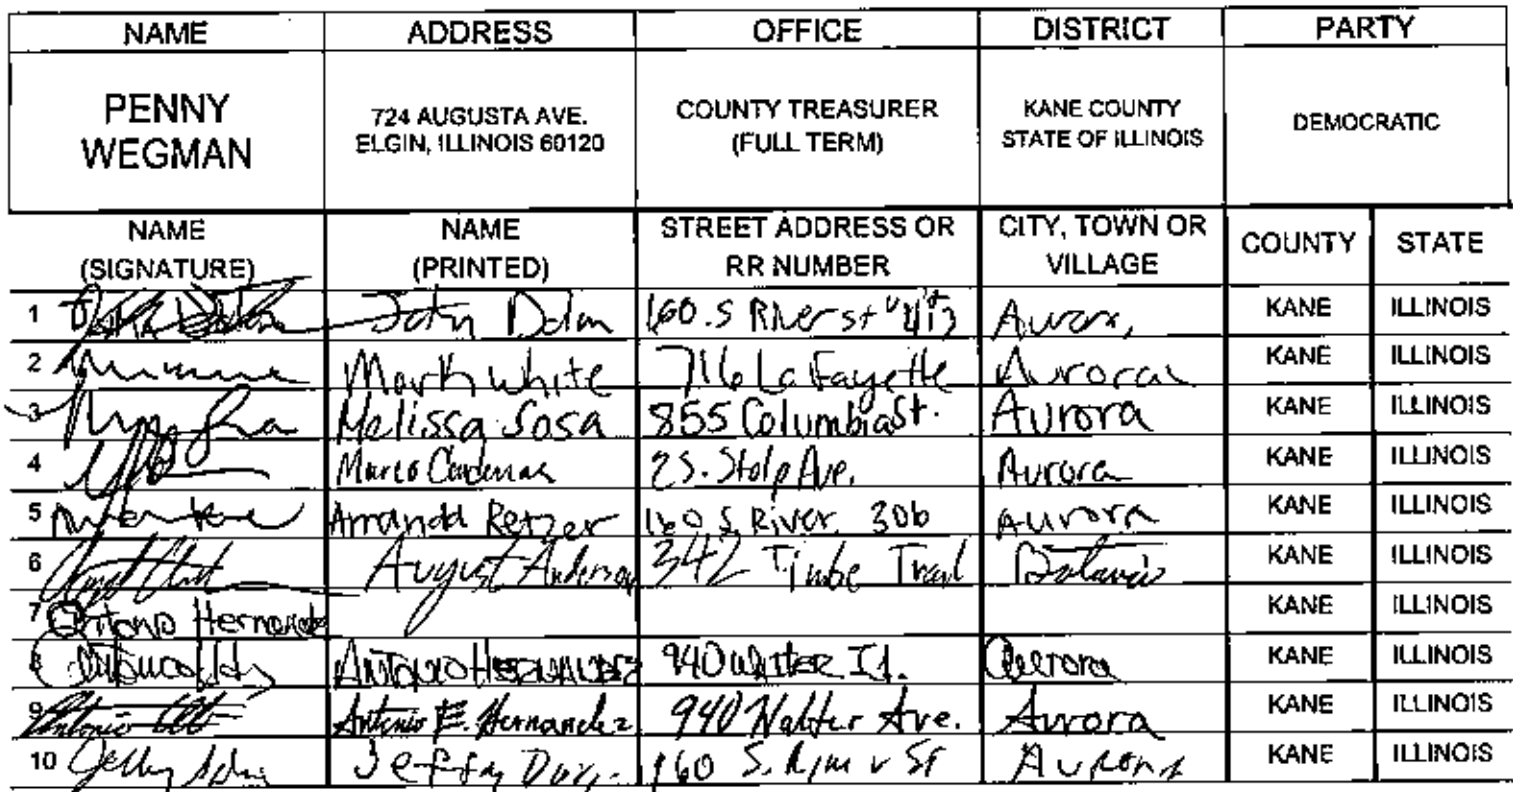 NAME ADDRESS OFFICE DISTRICT PARTY
PENNY WEGMAN
724 AUGUSTA AVE.
ELGIN, ILLINOIS 60120
COUNTY TREASURER
(FULL TERM)
KANE COUNTY
STATE OF ILLINOIS
DEMOCRATIC
NAME (SIGNATURE) NAME (PRINTED) STREET ADDRESS OR RR NUMBER CITY, TOWN OR VILLAGE COUNTY STATE
1 John 160 S River st KANE ILLINOIS
2 Mark White 716 LaFayette Aurora KANE ILLINOIS
3 Melissa Sosa 855 Columbia St. Aurora KANE ILLINOIS
4 Marco Cardenas 2 S. Stolp Ave. Aurora KANE ILLINOIS
5 Amanda Retzer 160 S. River. 306 Aurora KANE ILLINOIS
6 August Anderson 342 Timbe Trail Batavia KANE ILLINOIS
7 Antonio Hernandez KANE ILLINOIS
8 Antonio Hernandez 940 Aurora KANE ILLINOIS
9 Antonio E. Hernandez 940 Walter Ave. Aurora KANE ILLINOIS
10 160 S. Aurora KANE ILLINOIS